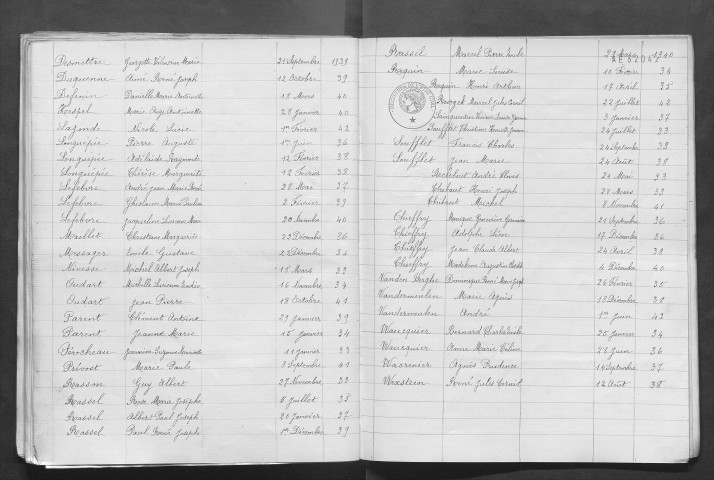 Desmettre Georgette Valentine Marie 21 Septembre 1939
Duquenne Aimé René Joseph 12 Octobre 39
Defenin Danielle Marie Antoinette 18 Mars 40
Hespel Marie Antoinette 28 Janvier 40
Lafonde Nicole Lucie 1er Février 42
Longuépée Pierre Auguste 1er Juin 36
Longuépée Adélaïde Raymonde 12 Février 38
Longuépée Thérèse Marguerite 12 Février 38
Lefebvre André Jean Marie René 28 Mai 37
Lefebvre Ghislaine Marie Pauline 2 Février 39
Lefebvre Jacqueline Marie 20 Novembre 40
Maillet Christiane Marguerite 22 Décembre 36
Messager Emile Gustave 22 Décembre 36
Nivesse Michel Albert Joseph 15 Mars 33
Oudart Michelle 16 Novembre 34
Oudart Jean Pierre 18 Octobre 41
Parent Clément Antoine 29 Janvier 39
Parent Jeanne Marie 15 Janvier 34
Pérocheau Jeannine Suzanne 11 Janvier 33
Prévost Marie Paule 3 Septembre 41
Rasson Guy Albert 27 Novembre 38
Rassel Rose Marie Josèphe 5 Juillet 35
Rassel Albert Paul Joseph 20 Janvier 37
Rassel Paul René Joseph 1er Décembre 39
Rassel Marcel Pierre Emile 23 Mars 1940
Requin Marie Louise 10 Février 34
Requin Henri Arthur 17 Avril 35
Marcel Jules 22 Juillet 42
3 Janvier 37
Soufflet Christiane 24 Juillet 33
Soufflet Francis Charles 24 Septembre 39
Soufflet Jean Marie 24 Août 38
André 24 Mai 33
Thibaut Henri Joseph 28 Mars 39
Thibaut Michel 8 Novembre 41
Thieffry Monique Geneviève 21 Septembre 36
Thieffry Adolphe Léon 17 Décembre 36
Thieffry Jean Claude Albert 24 Avril 38
Thieffry Madeleine Augustine 4 Décembre 40
Vanden Berghe Dominique Henri Marie Joseph 26 Février 35
Vandermeulen Marie Agnès 18 Décembre 38
Vandermeulen André 1er Juin 42
Waucquier Bernard 25 Janvier 34
Waucquier Anne Marie Céline 28 Juin 36
Wacrenier Agnès Prudence 14 Septembre 37
Waxstein René Jules Corneil 12 Août 38